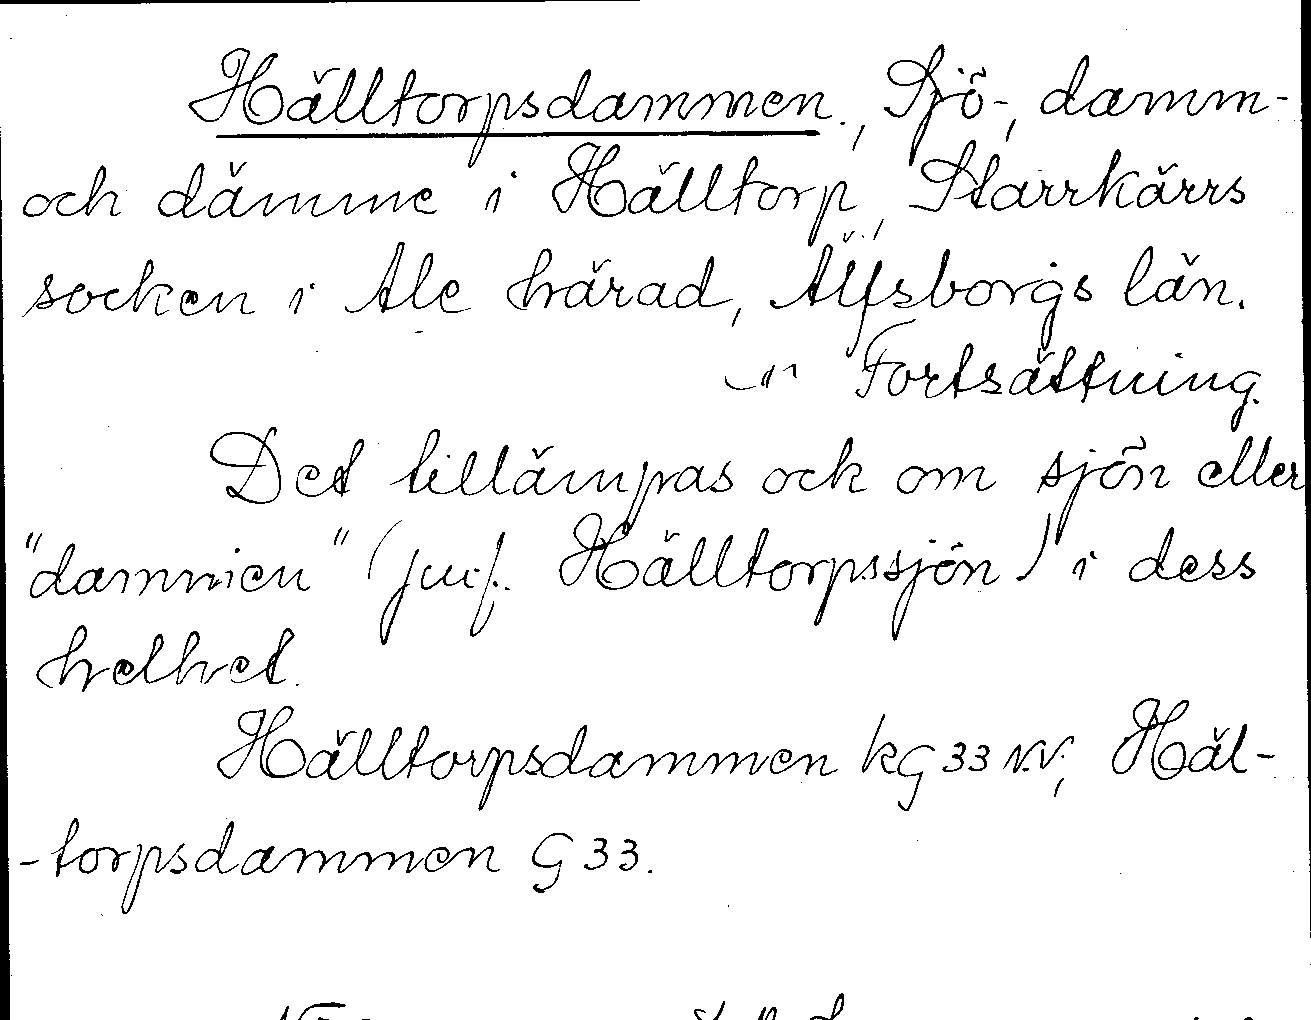 Hälltorpsdammen., Sjö-, damm-
och dämme i Hälltorp, Starrkärrs
socken i Ale härad, Älfsborgs län.
Fortsättning.
Det tillämpas ock om sjön eller
"dammen" (jmf. Hälltorpssjön) i dess
helhet.
Hälltorpsdammen kG 33 NV, Häl-
-torpsdammen G 33.